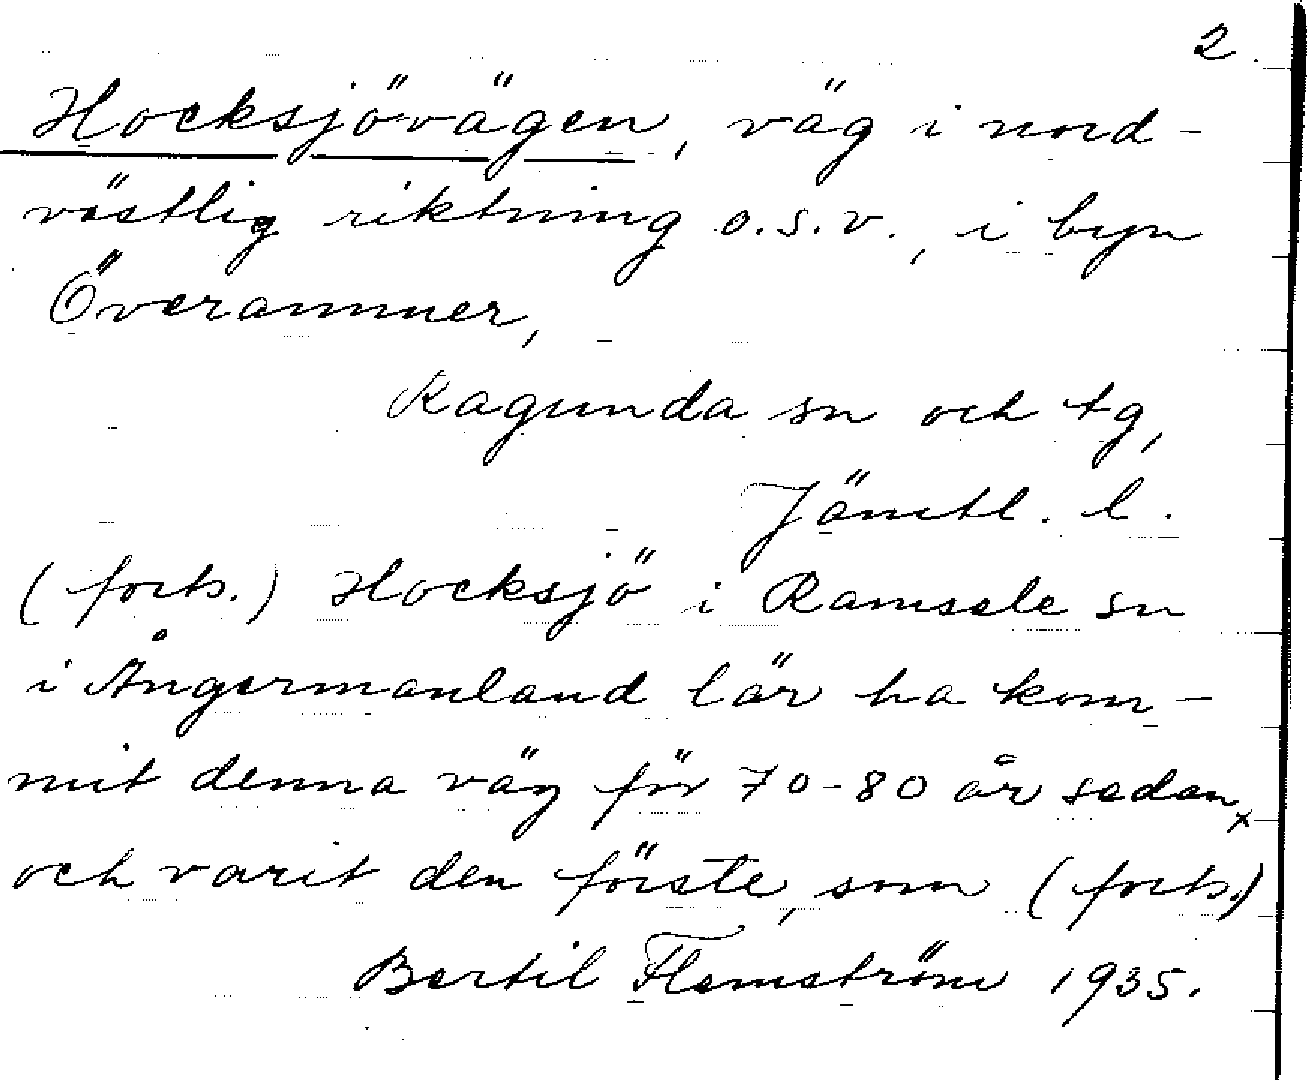 2.
Hocksjövägen, väg i nord-
västlig riktning o.s.v., i byn
Överammer,
Ragunda sn och tg,
Jämtl. l.
(forts.) Hocksjö i Ramsele sn
i Ångermanland lär ha kom-
mit denna väg för 70-80 år sedan x
och varit den förste, som (forts.)
Bertil Flemström 1935.